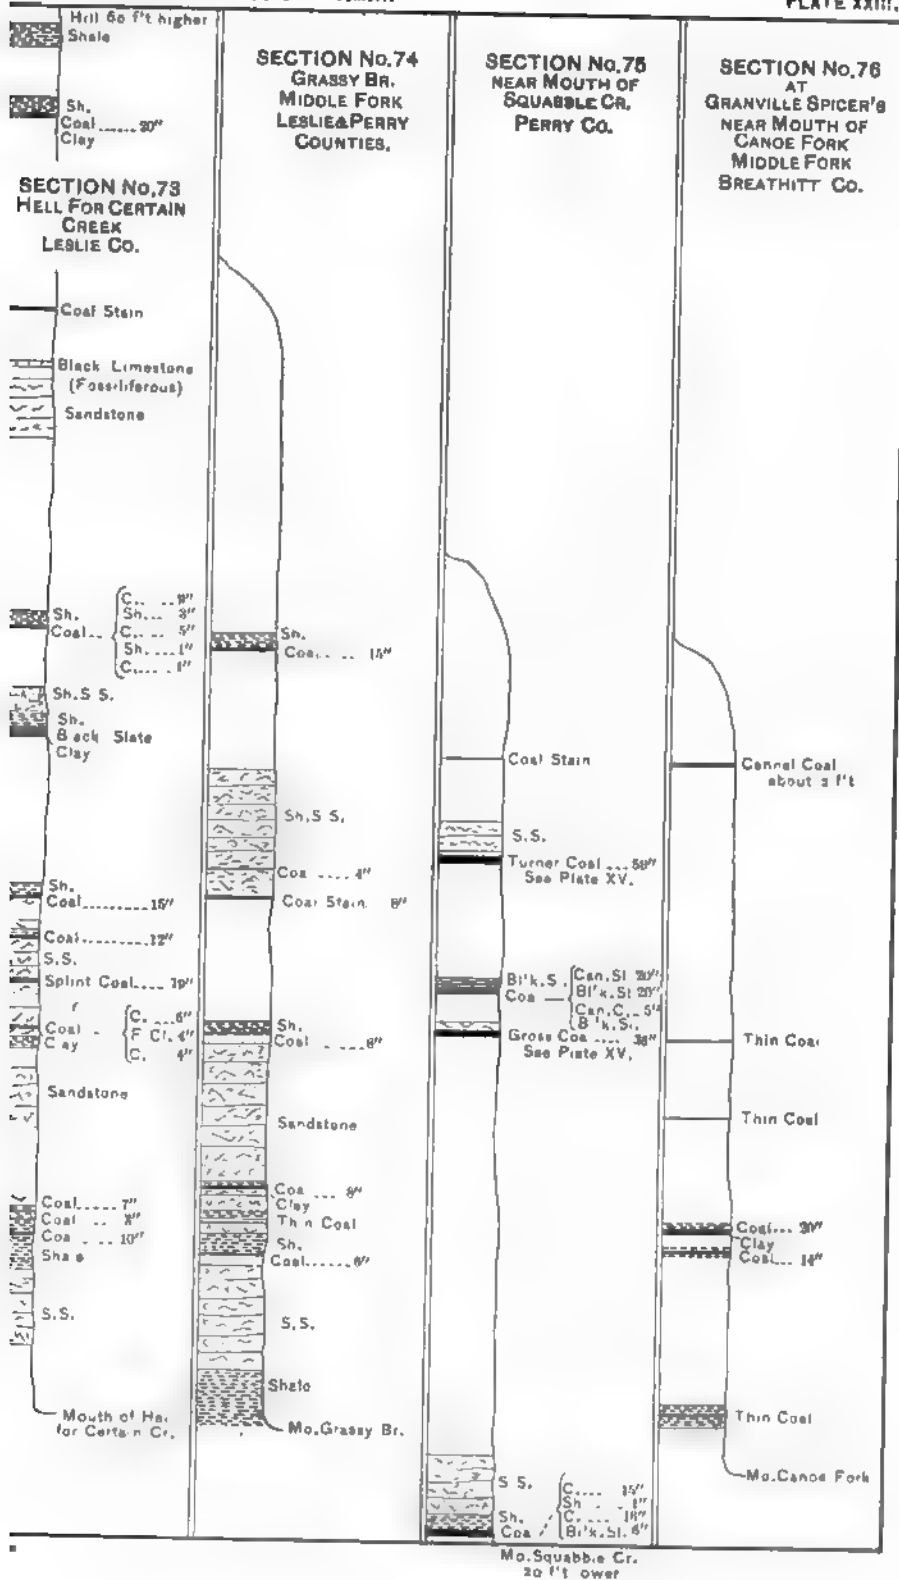 PLATE XXIII.
Hill 60 f't higher
Shale
Sh.
Coal ...... 30"
Clay
SECTION No.73
HELL FOR CERTAIN
CREEK
LESLIE CO.
Coal Stain
Black Limestone
(Fossiliferous)
Sandstone
Sh.
Coal..
C. ...
Sh... 3"
C. ... 5"
Sh. ... 1"
C. ... 1"
Sh.S S.
Sh.
Black Slate
Clay
Sh.
Coal ......... 15"
Coal .......... 12"
S.S.
Splint Coal .... 19"
Coal
Clay
C. ... 6"
F Cl. 4"
C. 4"
Sandstone
Coal ..... 7"
Coal .. 8"
Coa ... 10"
Sha e
S.S.
Mouth of He
for Certain Cr.
SECTION No.74
GRASSY BR.
MIDDLE FORK
LESLIE & PERRY
COUNTIES.
Sh.
Coal ..... 15"
Sh.S S.
Coa ... 4"
Coal Stain 8"
Sh.
Coal ..... 6"
Sandstone
Coa ... 9"
Clay
Thin Coal
Sh.
Coal ...... 6"
S.S.
Shale
Mo.Grassy Br.
SECTION No.75
NEAR MOUTH OF
SQUABBLE CR.
PERRY CO.
Coal Stain
S.S.
Turner Coal ... 59"
See Plate XV.
Bl'k.S.
Coa
Can.Sl 20"
Bl'k.Sl 20"
Can.C. 5"
B'k.Sl.
Gross Coa .... 38"
See Plate XV.
S S.
Sh.
Coa
C. ... 15"
Sh ... 1"
C. ... 18"
Bl'k.Sl. 6"
Mo.Squabble Cr.
20 f't ower
SECTION No.76
AT
GRANVILLE SPICER'S
NEAR MOUTH OF
CANOE FORK
MIDDLE FORK
BREATHITT CO.
Cannel Coal
about 2 f't
Thin Coal
Thin Coal
Coal ... 30"
Clay
Coal ... 14"
Thin Coal
Mo.Canoe Fork